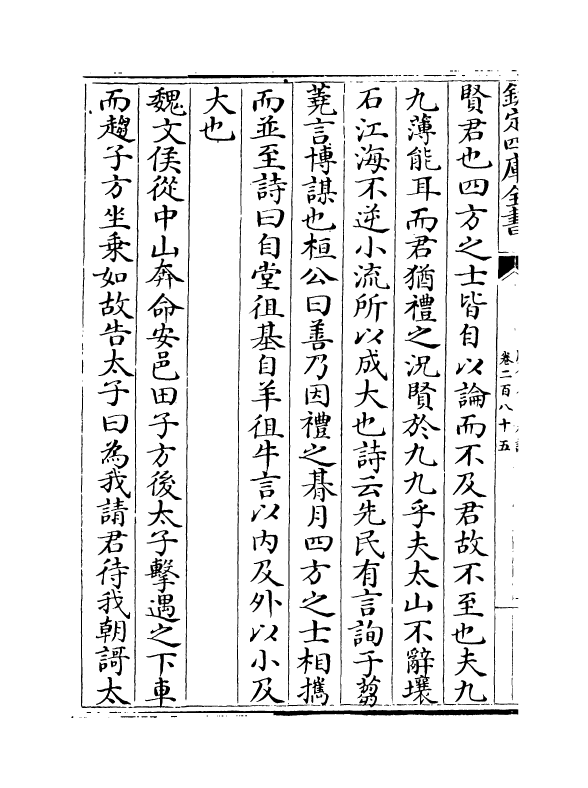 欽定四庫全書
卷二百八十五
賢君也四方之士皆自以論而不及君故不至也夫九
九薄能耳而君猶禮之況賢於九九乎夫太山不辭壤
石江海不逆小流所以成大也詩云先民有言詢于芻
蕘言博謀也桓公曰善乃因禮之朞月四方之士相攜
而並至詩曰自堂徂基自羊徂牛言以內及外以小及
大也
魏文侯從中山奔命安邑田子方後太子擊遇之下車
而趨子方坐乗如故告太子曰為我請君待我朝謌太